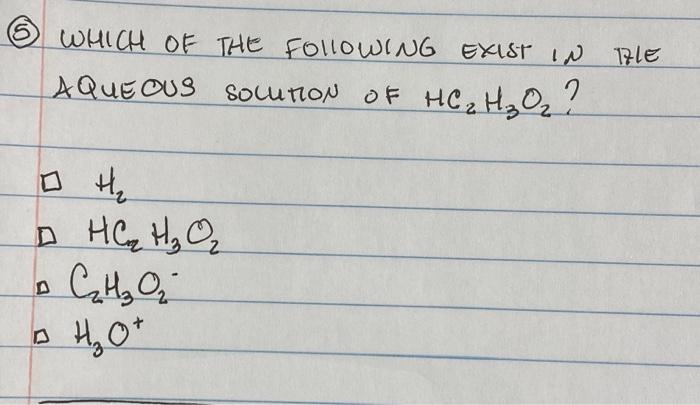 ⑤ WHICH OF THE FOLLOWING EXIST IN THE
AQUEOUS SOLUTION OF HC₂H₃O₂?
☐ H₂
☐ HC₂H₃O₂
☐ C₂H₃O₂⁻
☐ H₃O⁺